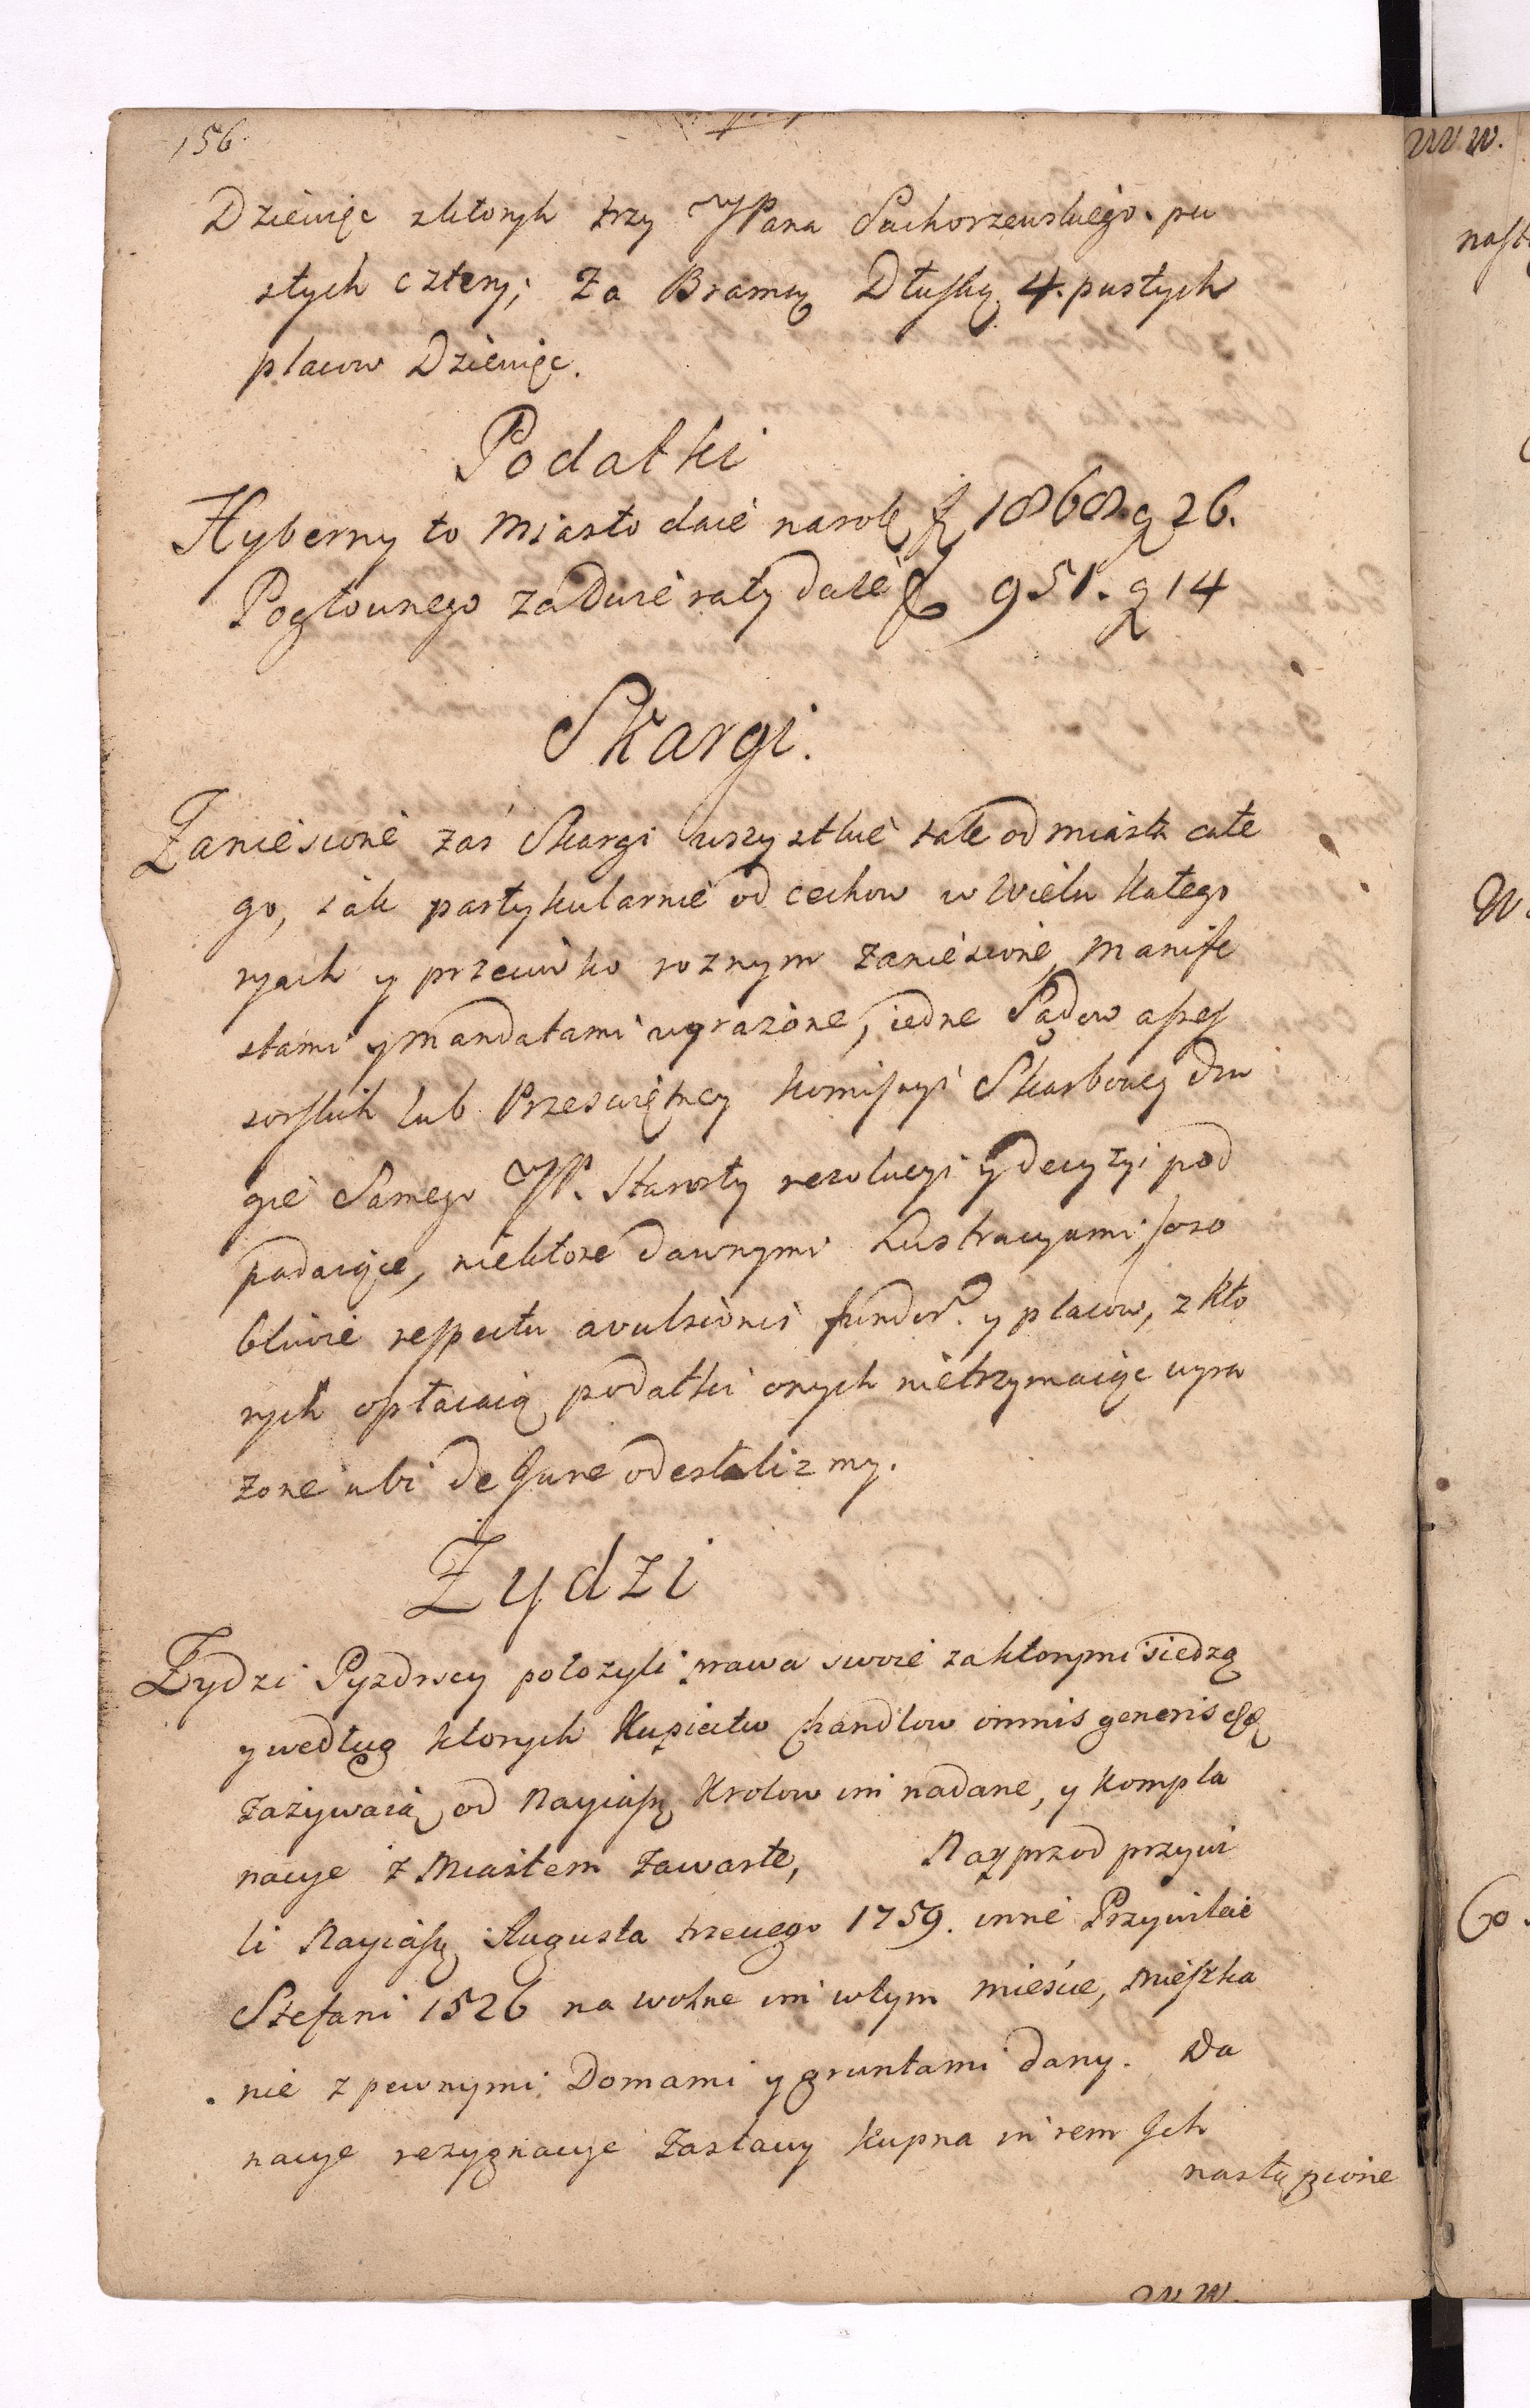 156
Dziewięc zktorych trzy JPana Suchorzewskiego. pu
stych cztery; Za Bramą Dłuską 4. pustych
placow Dziewięc.
Podatki
Hyberny to Miasto daie narok f 1868. g 26.
Pogłownego zadwie raty daie f 951. g 14
Skargi.
Zaniesione zaś Skargi wszystkie tak od miasta całe
go, iak partykularnie od cechow w wielu katego
ryach y przeciwko roznym zaniesione, manife
stami y mandatami wyrażone, iedne Sądow assess
sorskich lub Przeswiętney Komissyi Skarbowey dru
gie Samego JP. Starosty rezolucyi y decyzyi pod
padaiące, niektore dawnymi Lustracyami, oso
bliwie respectu avulsionis fundor. y placow, z kto
rych opłacaią podatki onych nietrzymaiąc wyra
żone ubi de Jure odesłalizmy.
Żydzi
Żydzi Pyzdrscy położyli prawa swoie zaktorymi siedzą
y według ktorych Kupiectw handlow omnis generis
zażywaią od Nayiasz Krolow im nadane, y kompla
nacye z Miastem zawarte, Nayprzod przywi
li Nayiasz Augusta trzeciego 1759. inne Przywileie
Stefani 1526 na wolne im wtym mieście, mieszka
nie z pewnymi Domami y gruntami dany. Do
nacye rezygnacye Zastawy kupna in rem Jch
nastąpione